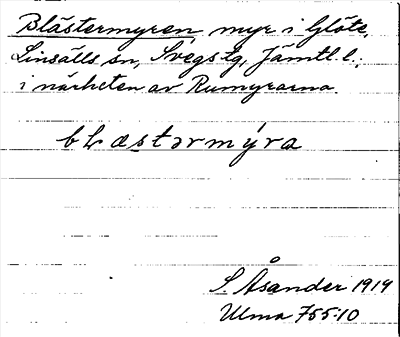 Blästermyren myr i Glöte,
Linsälls sn, Svegs tg, Jämtl. l.,
i närheten av Rumyrarna.
bLæstərmýra
S. Åsander 1919
Ulma 755:10